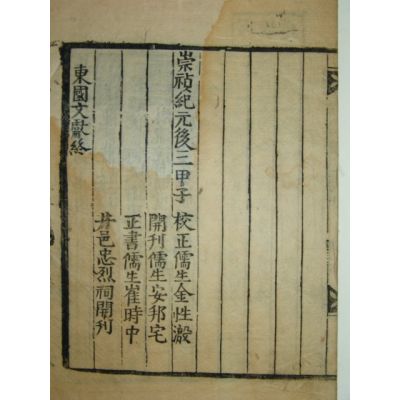 崇禎紀元後三甲子
校正儒生金性溵
開刊儒生安邦宅
正書儒生崔時中
井邑忠烈祠開刊
東國文獻終